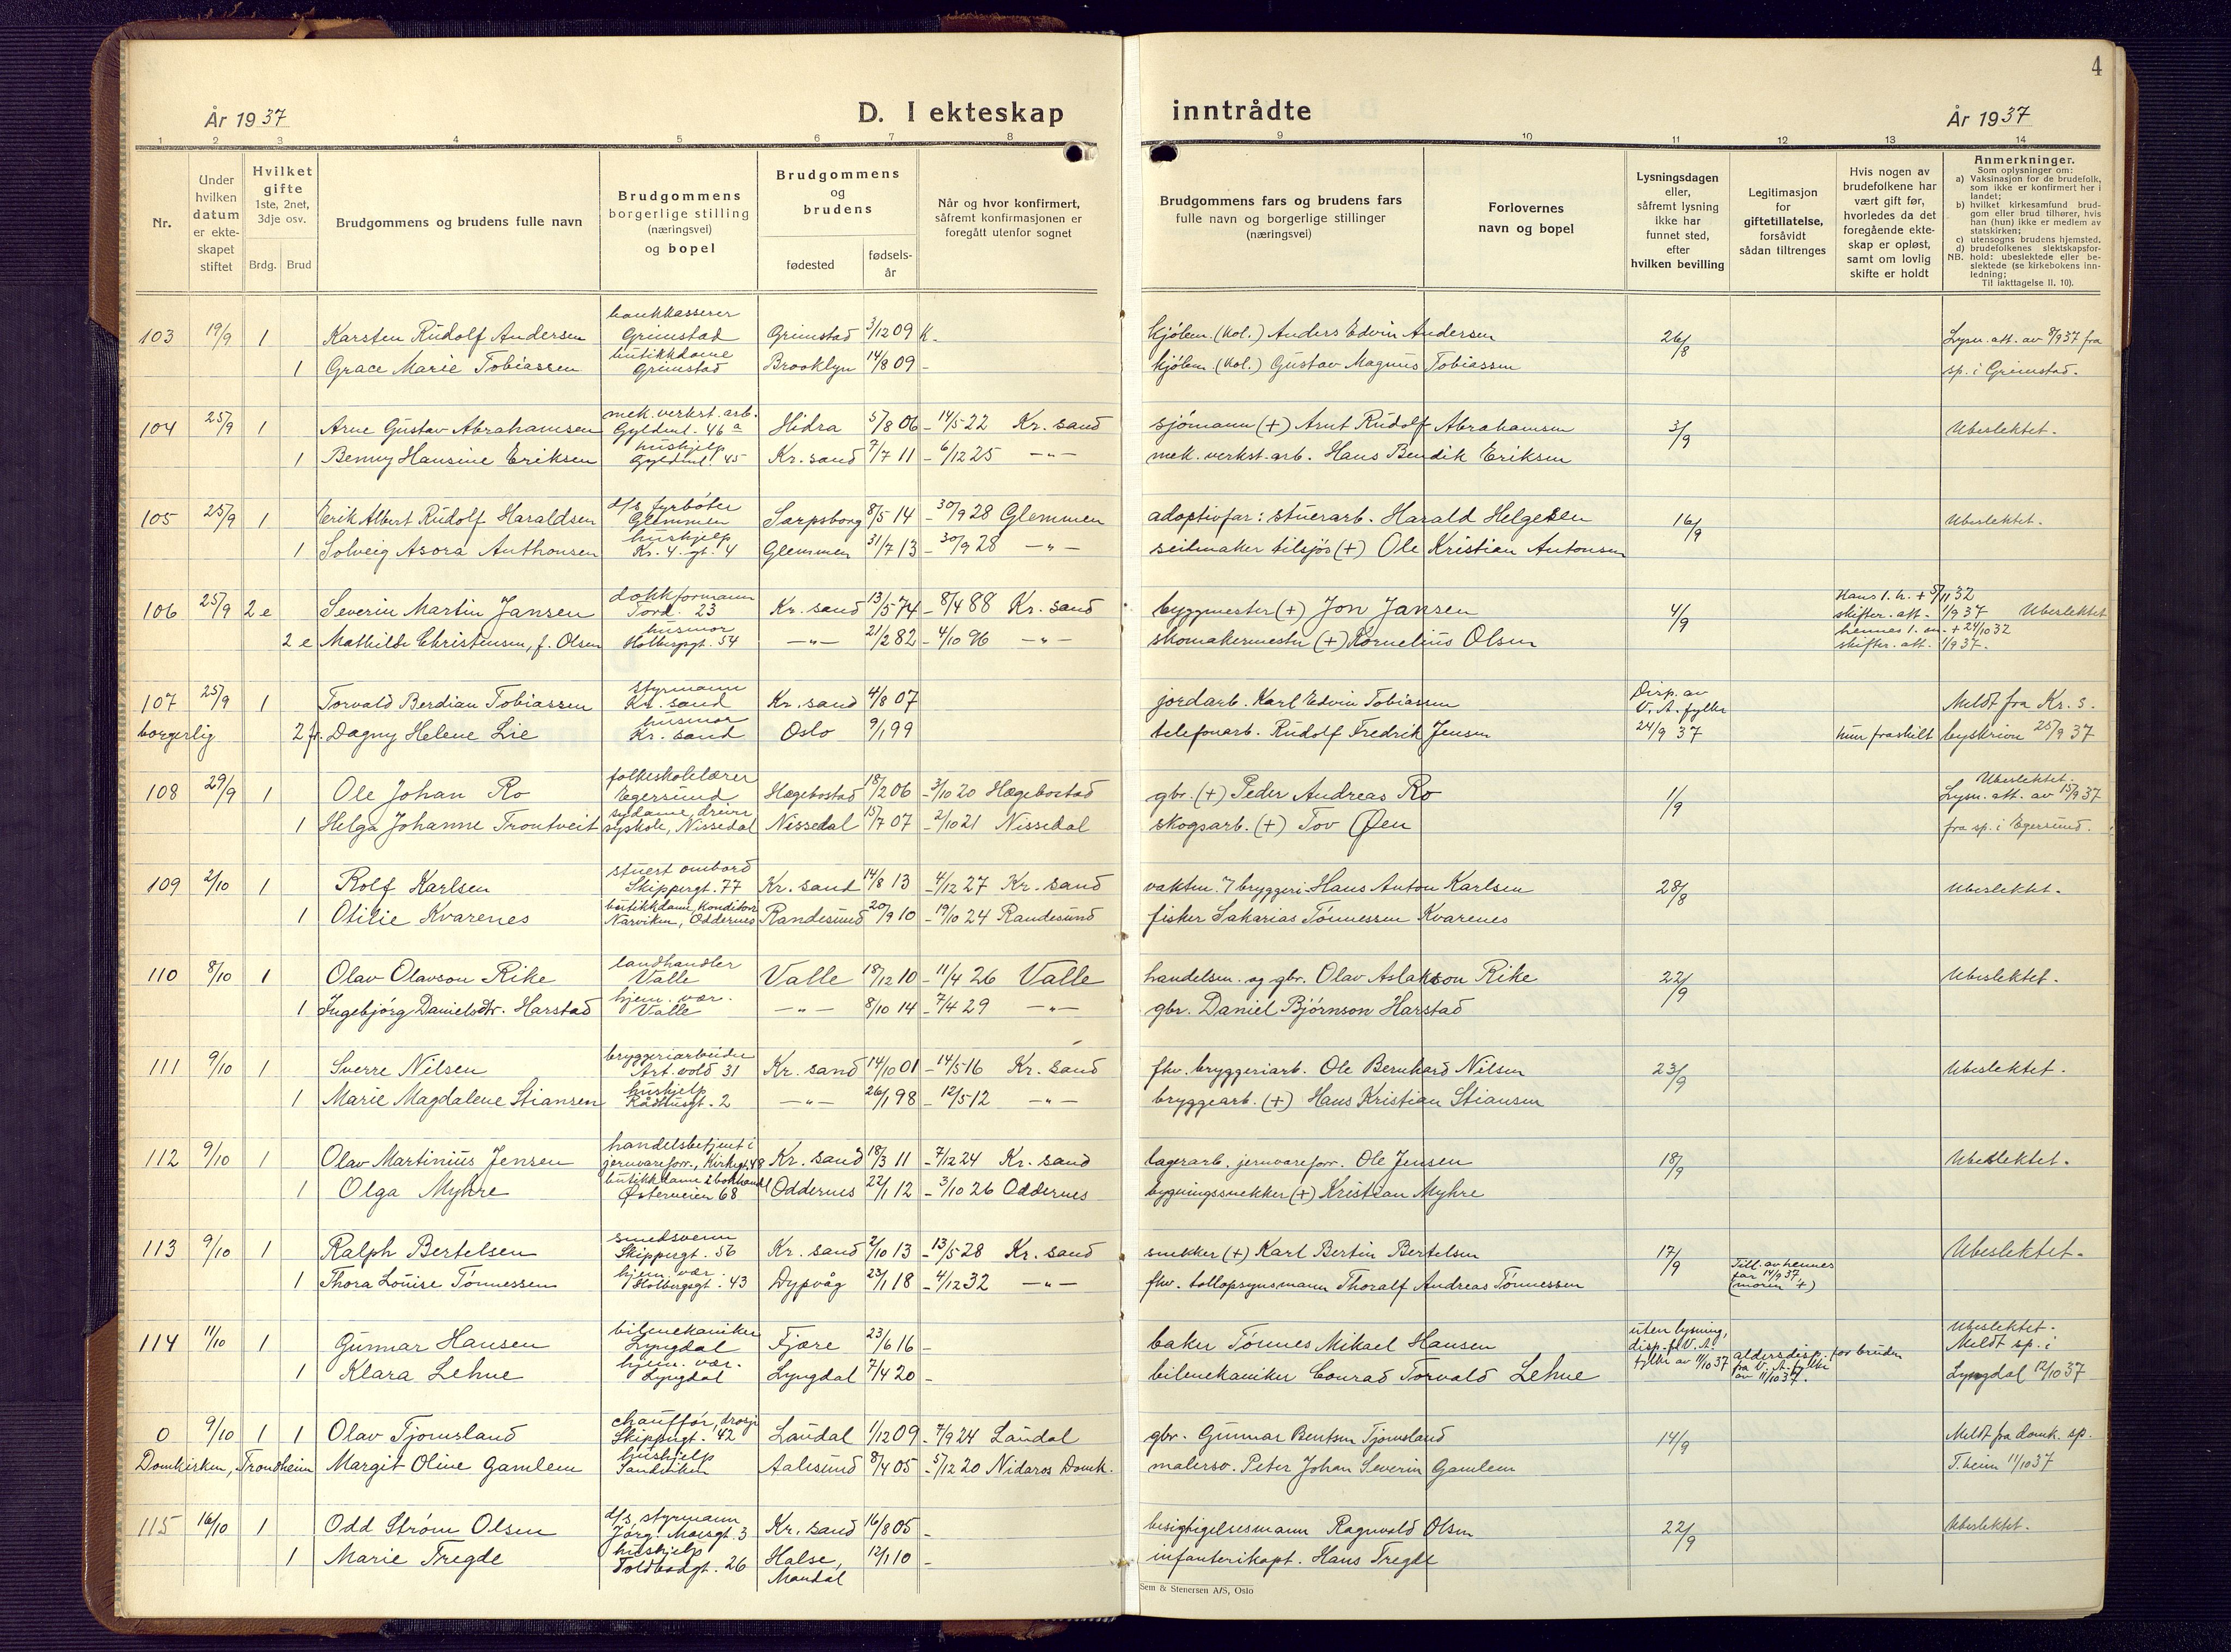 4
År 1937
D. I ekteskap
inntrådte
År 1937
1 2 3 4 5 6 7 8 9 10 11 12 13 14
Nr.
Under
hvilken
datum
er ekte-
skapet
stiftet
Hvilket
gifte
1ste, 2net,
3dje osv.
Brdg. Brud
Brudgommens og brudens fulle navn
Brudgommens
borgerlige stilling
(næringsvei)
og bopel
Brudgommens
og
brudens
fødested
fødsels-
år
Når og hvor konfirmert,
såfremt konfirmasjonen er
foregått utenfor sognet
Brudgommens fars og brudens fars
fulle navn og borgerlige stillinger
(næringsvei)
Forlovernes
navn og bopel
Lysningsdagen
eller,
såfremt lysning
ikke har
funnet sted,
efter
hvilken bevilling
Legitimasjon
for
giftetillatelse,
forsåvidt
sådan tiltrenges
Hvis nogen av
brudefolkene har
vært gift før,
hvorledes da det
foregående ekte-
skap er opløst,
samt om lovlig
skifte er holdt
Anmerkninger.
Som oplysninger om:
a) Vaksinasjon for de brudefolk,
som ikke er konfirmert her i
landet;
b) hvilket kirkesamfund brud-
gom eller brud tilhører, hvis
han (hun) ikke er medlem av
statskirken;
c) utensogns brudens hjemsted.
d) brudefolkenes slektskapsfor-
NB. hold: ubeslektede eller be-
slektede (se kirkebokens inn-
ledning;
Til iakttagelse II. 10).
bankkasserer
103 19/9 1 Karsten Rudolf Andersen Grimstad Grimstad 3/12 09 K. kjølem. (kol.) Anders Edvin Andersen 26/8 Lysn. att. av 8/9 37 fra
butikkdame
1 Grace Marie Tobiassen Grimstad Brooklyn 14/8 09 - kjølem. (kol.) Gustav Magnus Tobiassen sp. i Grimstad.
mek. verkst. arb.
104 25/9 1 Arne Gustav Abrahamsen Gyldenl. 46 a Hidra 5/8 06 - 14/5 22 Kr. sand sjømann (+) Arnt Rudolf Abrahamsen 3/9 Ubeslektet.
hushjelp
1 Benny Hansine Eriksen Gyldenl. 45 Kr. sand 7/7 11 - 6/12 25 -"- mek. verkst. arb. Hans Bendik Eriksen
d/s fyrbøter
105 25/9 1 Erik Albert Rudolf Haraldsen Glemmen Sarpsborg 8/5 14 - 30/9 28 Glemmen adoptivfar: stuerarb. Harald Helgesen 16/9 Ubeslektet.
hushjelp
1 Solveig Asora Anthonsen Kr. 4. gt. 4 Glemmen 31/7 13 - 30/9 28 -"- seilmaker tilsjøs (+) Ole Kristian Antonsen
dokkformann
106 25/9 2 e Severin Martin Jansen Tord. 23 Kr. sand 13/5 74 - 8/4 88 Kr. sand byggmester (+) Jon Jansen 4/9 Hans 1. h. + 5/11 32
skifter. att. 1/9 37 Ubeslektet
husmor hennes 1. m. + 24/10 32
2 e Mathilde Christensen, f. Olsen Holbergsgt. 54 -"- 21/2 82 - 4/10 96 -"- skomakermester (+) Kornelius Olsen skifter. att. 1/9 37.
styrmann
107 25/9 1 Torvald Berdian Tobiassen Kr. sand Kr. sand 4/8 07 jordarb. Karl Edvin Tobiassen Disp. av
V. A. fylke Meldt fra Kr. s.
husmor
borgerlig 2 fr. Dagny Helene Lie Kr. sand Oslo 9/1 99 telefonarb. Rudolf Fredrik Jensen 24/9 37 hun fraskilt byskriver 25/9 37
folkeskolelærer Ubeslektet.
108 29/9 1 Ole Johan Ro Egersund Hægebostad 18/2 06 - 3/10 20 Hægebostad gbr. (+) Peder Andreas Ro 1/9 Lysn. att. av 15/9 37
sydame, driver
1 Helga Johanne Trontveit syskole, Nissedal Nissedal 15/7 07 - 2/10 21 Nissedal skogsarb. (+) Tov Øen fra sp. i Egersund.
stuert ombord
109 2/10 1 Rolf Karlsen Skippergt. 77 Kr. sand 14/8 13 - 4/12 27 Kr. sand vaktm. i bryggeri Hans Anton Karlsen 28/8 Ubeslektet.
butikkdame, Konditori
1 Otilie Kvarenes Narviken, Oddernes Randesund 20/9 10 - 19/10 24 Randesund fisker Sakarias Tønnessen Kvarenes
landhandler
110 8/10 1 Olav Olavson Rike Valle Valle 18/12 10 - 11/4 26 Valle handelsm. og gbr. Olav Aslakson Rike 22/9 Ubeslektet.
hjem. vær.
1 Ingebjørg Danielsdtr. Harstad Valle -"- 8/10 14 - 7/4 29 -"- gbr. Daniel Bjørnson Harstad
bryggeriarbeider
111 9/10 1 Sverre Nilsen Art. vold 31 Kr. sand 14/10 01 - 14/5 16 Kr. sand fhv. bryggeriarb. Ole Bernhard Nilsen 23/9 Ubeslektet.
hushjelp
1 Marie Magdalene Stiansen Rådhusgt. 2 -"- 26/1 98 - 12/5 12 -"- bryggearb. (+) Hans Kristian Stiansen
handelsbetjent i
112 9/10 1 Olav Martinius Jensen jernvareforr., Kirkegt. 48 Kr. sand 18/3 11 - 7/12 24 Kr. sand lagerarb. jernvareforr. Ole Jensen 18/9 Ubeslektet.
butikkdame i bokhandel
1 Olga Myhre Østerveien 68 Oddernes 22/1 12 - 3/10 26 Oddernes bygningssnekker (+) Kristian Myhre
smedsvenn
113 9/10 1 Ralph Bertelsen Skippergt. 56 Kr. sand 2/10 13 - 13/5 28 Kr. sand snekker (+) Karl Bertin Bertelsen 17/9 Ubeslektet.
hjem. vær.
1 Thora Louise Tønnessen Holbergsgt. 43 Dypvåg 23/1 18 - 4/12 32 -"- fhv. tollopsynsmann Thoralf Andreas Tønnessen Till. av hennes
far 14/9 37
(moren +)
bilmekaniker uten lysning, Ubeslektet.
114 11/10 1 Gunnar Hansen Lyngdal Fjære 23/6 16 - baker Tønnes Mikael Hansen disp. fl. V. A. Meldt sp. i
hjem. vær. fylke av 11/10 37 aldersdisp. for bruden
1 Klara Lehne Lyngdal Lyngdal 7/4 20 - bilmekaniker Conrad Torvald Lehne fra V. A. fylke
av 11/10 37. Lyngdal 12/10 37
chauffør, drosje
0 9/10 1 1 Olav Tjomsland Skippergt. 42 Laudal 1/12 09 - 7/9 24 Laudal gbr. Gunnar Bentsen Tjomsland 14/9 Meldt fra domk. sp.
hushjelp
Domkirken, Trondheim Margit Oline Gamlem Sandviken Aalesund 8/4 05 - 5/12 20 Nidaros Domk. malersv. Peter Johan Severin Gamlem T.heim 11/10 37
d/s styrmann
115 16/10 1 Odd Strøm Olsen Jørg. Moesgt. 3 Kr. sand 16/8 05 - besigtigelsesmann Ragnvald Olsen 22/9 Ubeslektet.
hushjelp
1 Marie Tregde Toldbodgt. 26 Halse, 12/1 10 - infanterikapt. Hans Tregde
Mandal
Sem & Stenersen A/S, Oslo